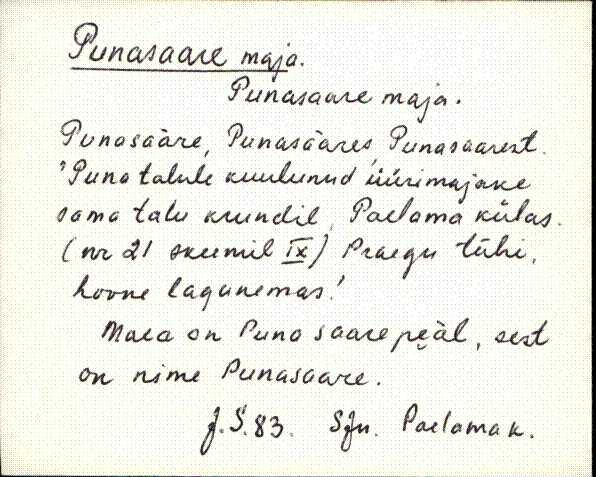 Punasaare maja.
Punasaare maja.
Punasääre, Punasääres, Punasaarest.
"Puna talule kuulunud üürimajake
sama talu krundil, Paelama külas.
(nr 21 skeemil IX) Praegu tühi,
hoone lagunemas!
Maea on Puna saare pęäl, sest
on nime Punasaare.
J.S.83. Sjn. Paelama k.